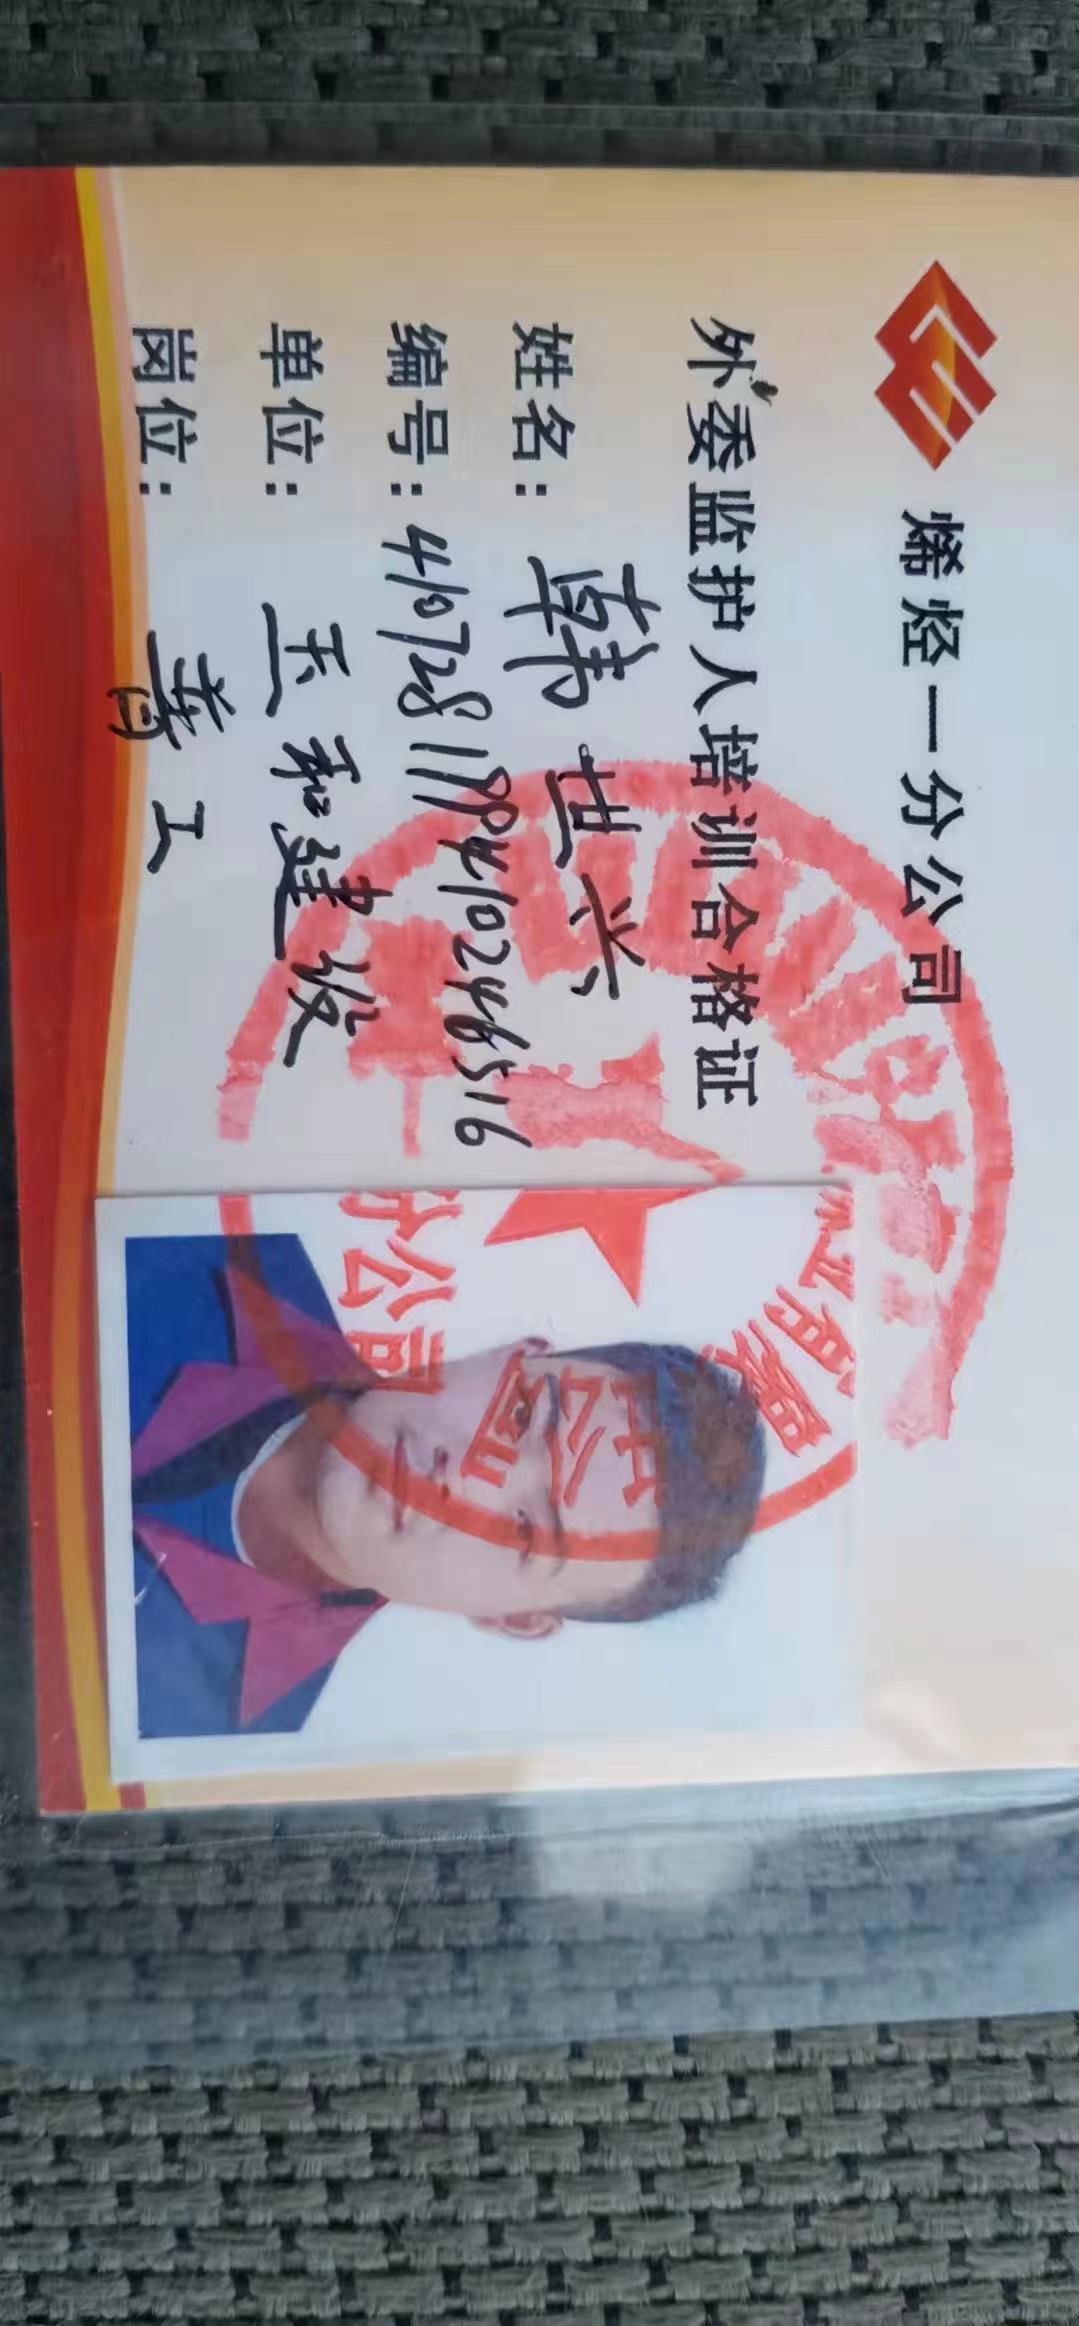 烯烃一分公司
外委监护人培训合格证
姓名：韩世兴
编号：410728199410246516
单位：玉和建设
岗位：普工
分公司